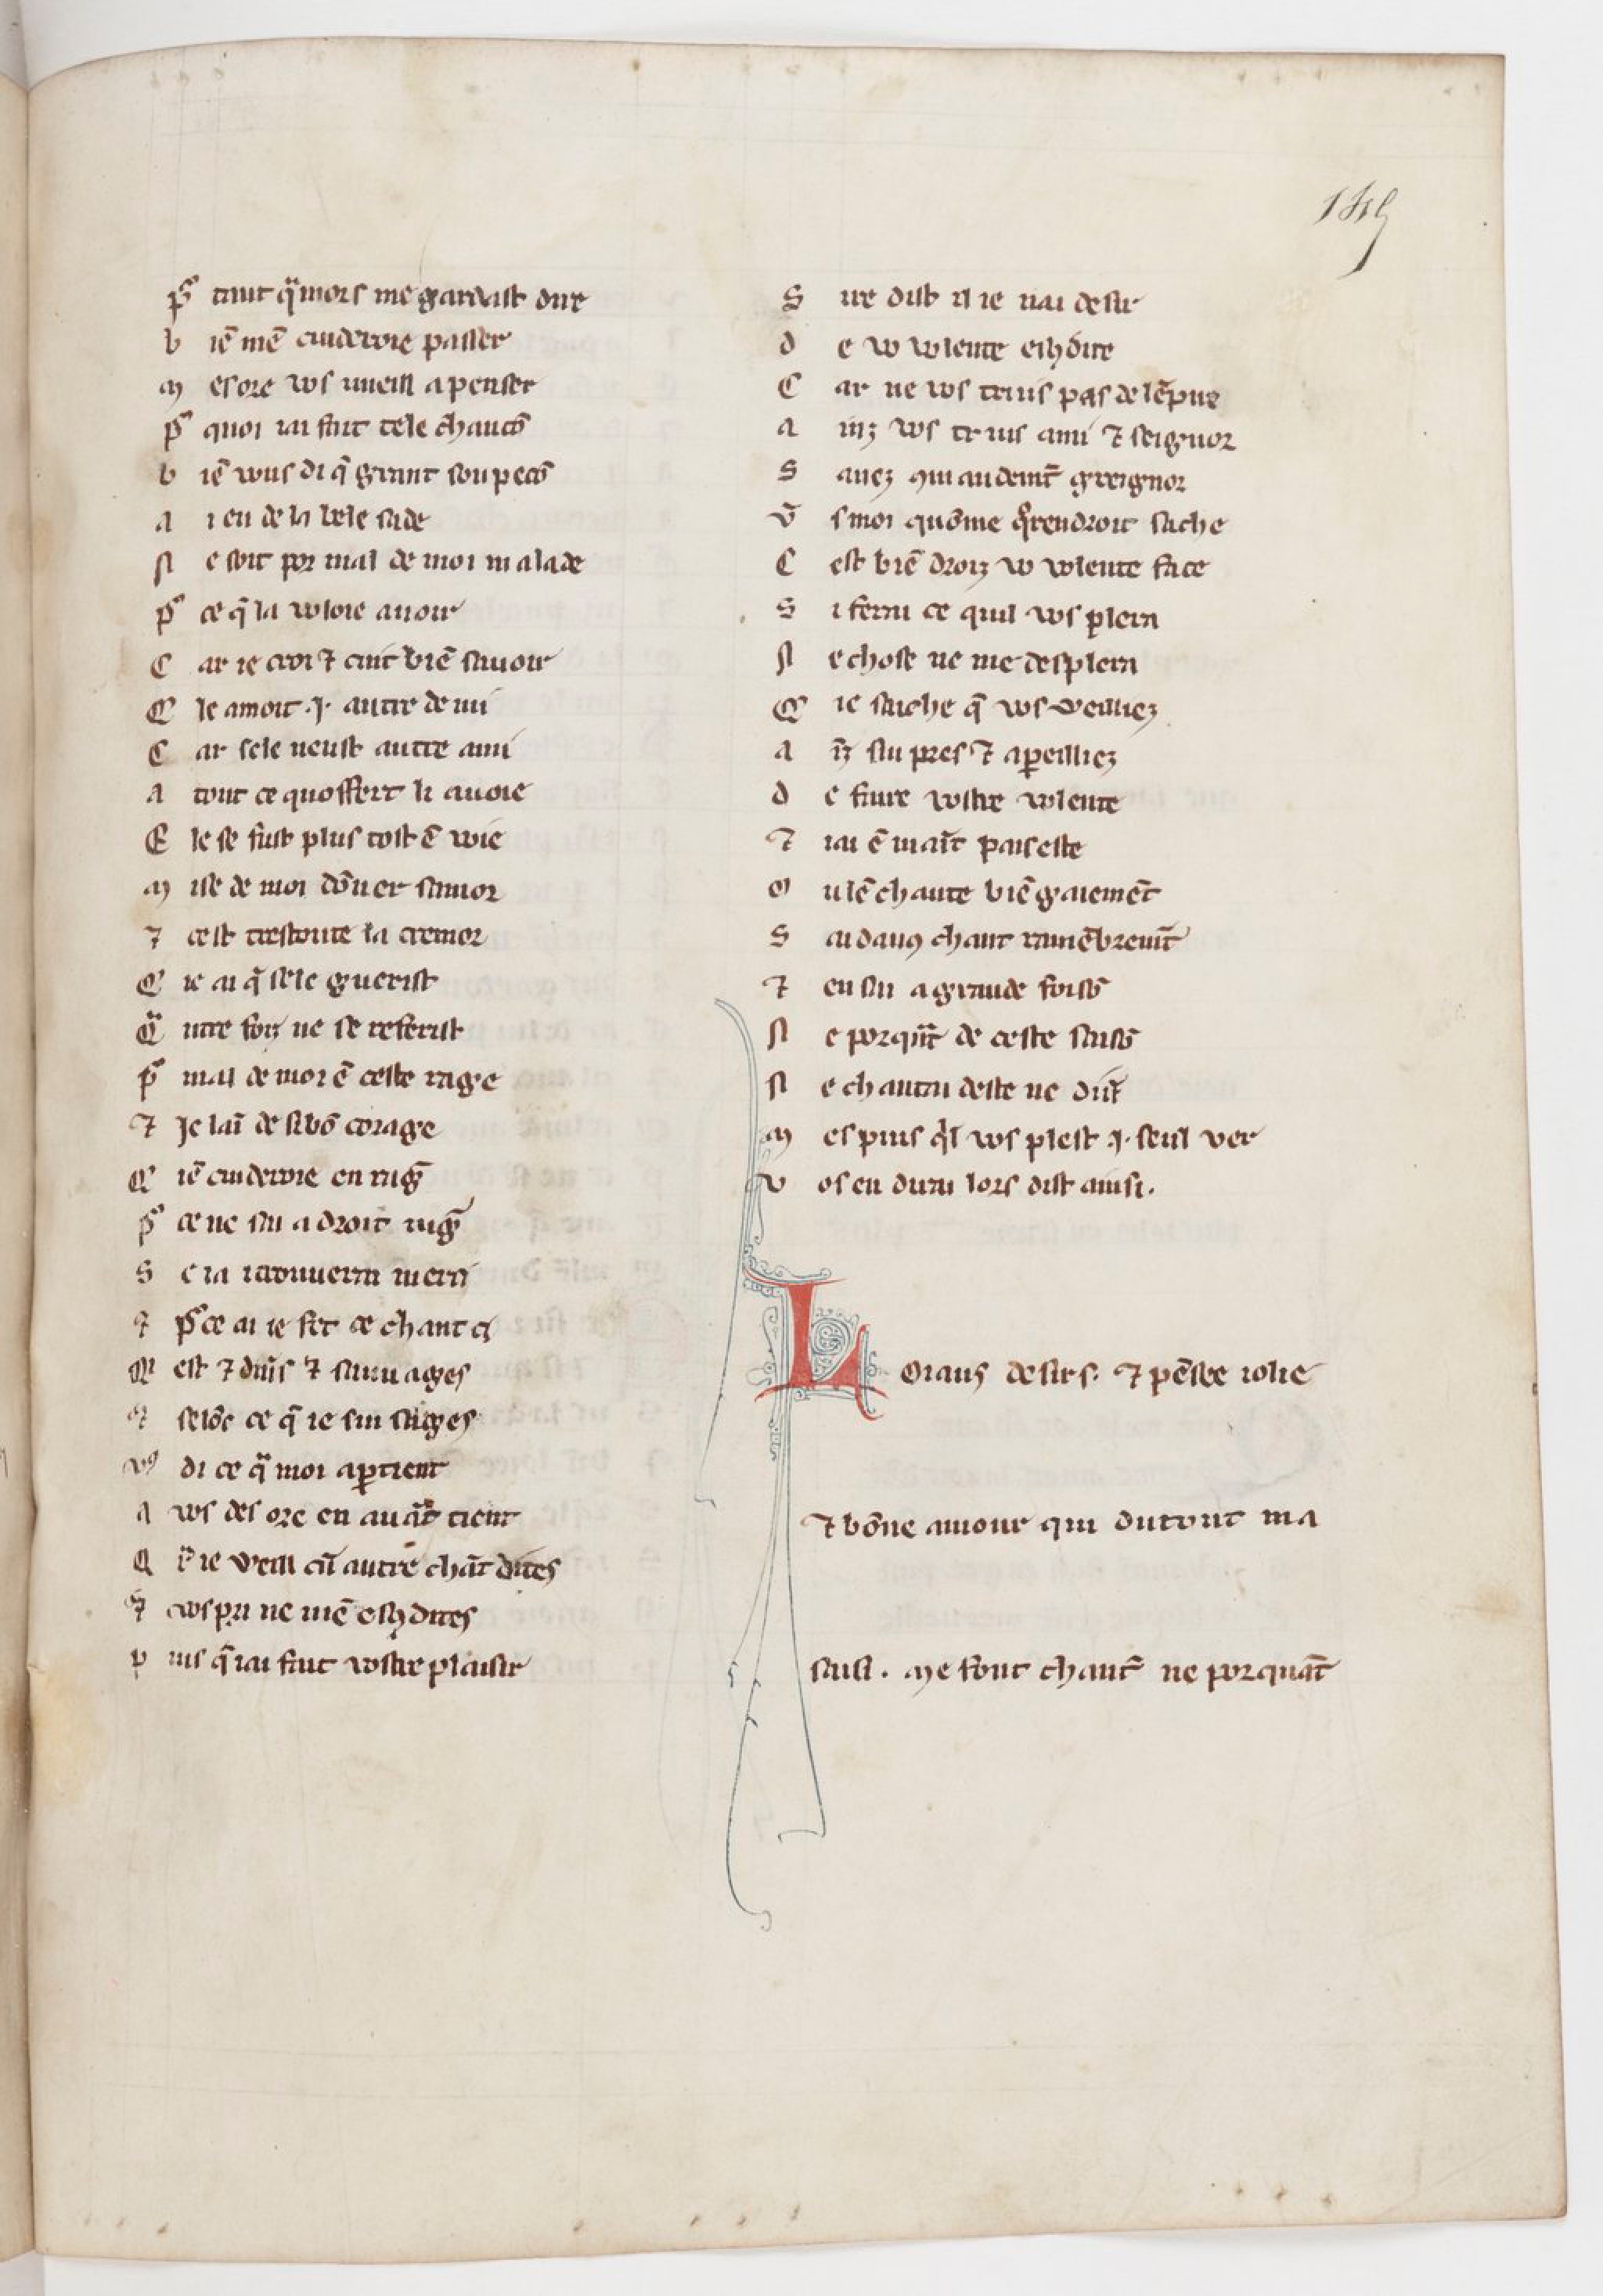 145
Pͬ tant qͣ mors me gardast dure
b iē mē cuideroie passer
m es ore vos vueill a penser
Pͬ quoi iai fait tele chancō
b iē vous di q̄ grant soupecō
a i eu de la bele sade
N e soit por mal de moi malade
Pͬ ce q̄ la voloie auoir
C ar ie croi ⁊ cuit biē sauoir
Q̄ le amoit .i. autre de mi
C ar sele neust autre ami
a tout ce quoffert li auoie
E le se fust plus tost ē voie
m ise de moi dōner samor
⁊ cest trestoute la cremor
Q̄ ie ai q̄ sele guerist
Qͣ utre foiz ne se referist
Pͬ mal de moi ē ceste rage
⁊ Je lai de si bō corage
Q̄ iē cuideroie enragͬ
Pͬ ce ne sai a droit iugͬ
S e ia i trouuerai merci
⁊ pͬ ce ai ie fet ce chant ci
M est ⁊ duis ⁊ sauuages
⁊ selōc ce q̄ ie sui sages
vꝰ di ce qͣ moi aꝑtient
a vos des ore en auāt tient
Q̄ r ie veill cū autre chāt dites
⁊ vos pri ne mē eschͦdites
p uis q̄ iai fait vostre plaisir
S ire dist il ie nai desir
d e vo volente eschͦdire
C ar ne vos truis pas de lē pire
a inz vos truis ami ⁊ seignor
S auez qui audemt̄ greignor
v̄ s moi quōme qͥ rendroit sache
C est biē droiz vo volente face
S i ferai ce quil vos plera
N e chose ne me desplera
Q̄ ie sache q̄ vos veilliez
a īz sui pres ⁊ aꝑeilliez
d e faire vostre volente
⁊ iai ē maīt pais este
O u lē chante biē gaiemēt
S ai dauꝯ chant ramēbremt̄
⁊ en sai a grande foisō
N e porqͣnt de ceste saisō
N e chantai deste ne diuͬ
m es puis qͥl vos plest .i. seul ver
v os en dirai lors dist ainsi.
L Oiaus desirs. ⁊ pēsee iolie
⁊ bōne amour qui durout ma
saisi. me font chantͬ ne porquāt